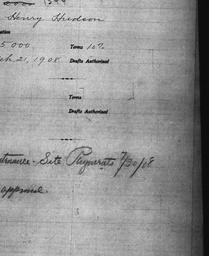 Henry Hudson
ation
5 000 Terms 10%
ch 21, 1908. Drafts Authorized
Terms
Drafts Authorized
Payments 7/30/08
approval.